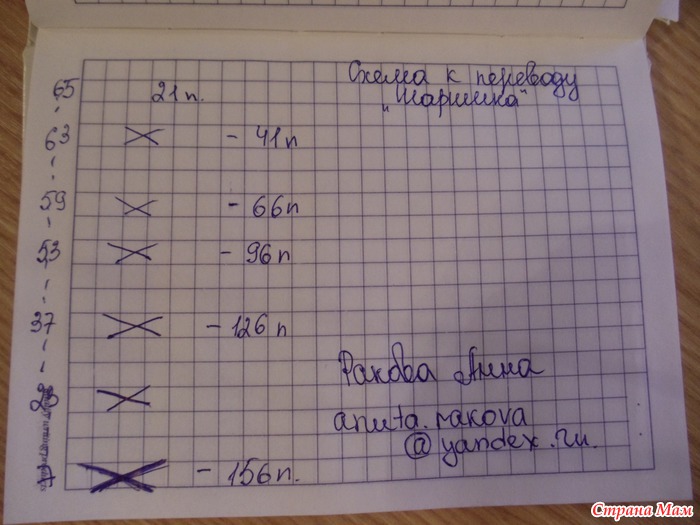 Схема к переводу
65 21п. "Шаришка"
63 - 41п
59 - 66п
53 - 96п
37 - 126п
Ракова Анна
28
anuta.rakova
@yandex.ru.
- 156п.
Страна Мам